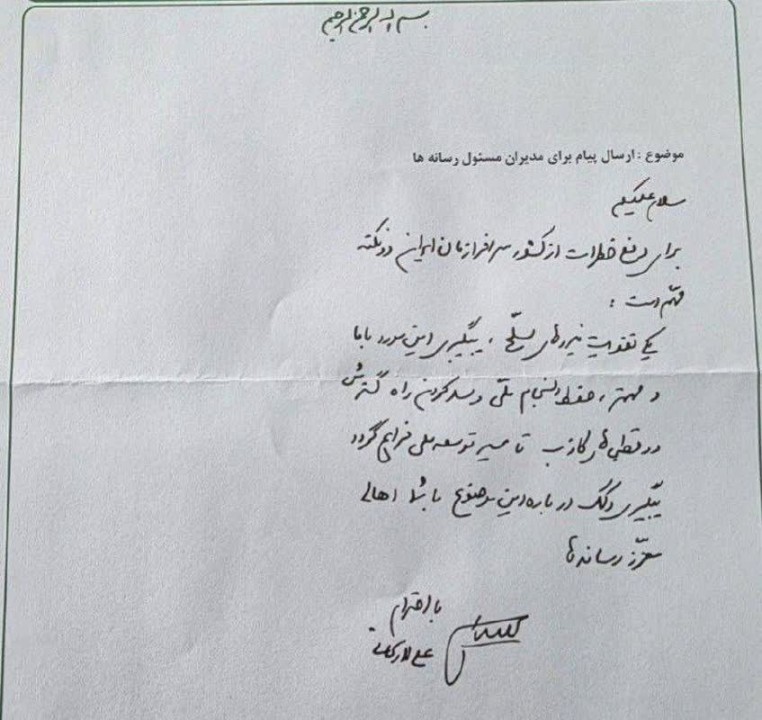 بسم الله الرحمن الرحیم
موضوع : ارسال پیام برای مدیران مسئول رسانه ها
سلام علیکم
برای رفع خطرات از کشور سرافرازمان ایران دو نکته
مهم است :
یکی تقویت نیروهای مسلّح ، پیگیری این مورد با ما
و مهمتر ، حفظ انسجام ملّی و سد کردن راه گسترش
دوقطبی‌های کاذب تا مسیر توسعه ملی فراهم گردد
پیگیری و کمک درباره این موضوع با شما اهالی
معزّز رسانه‌ها
با احترام
علی لاریجانی